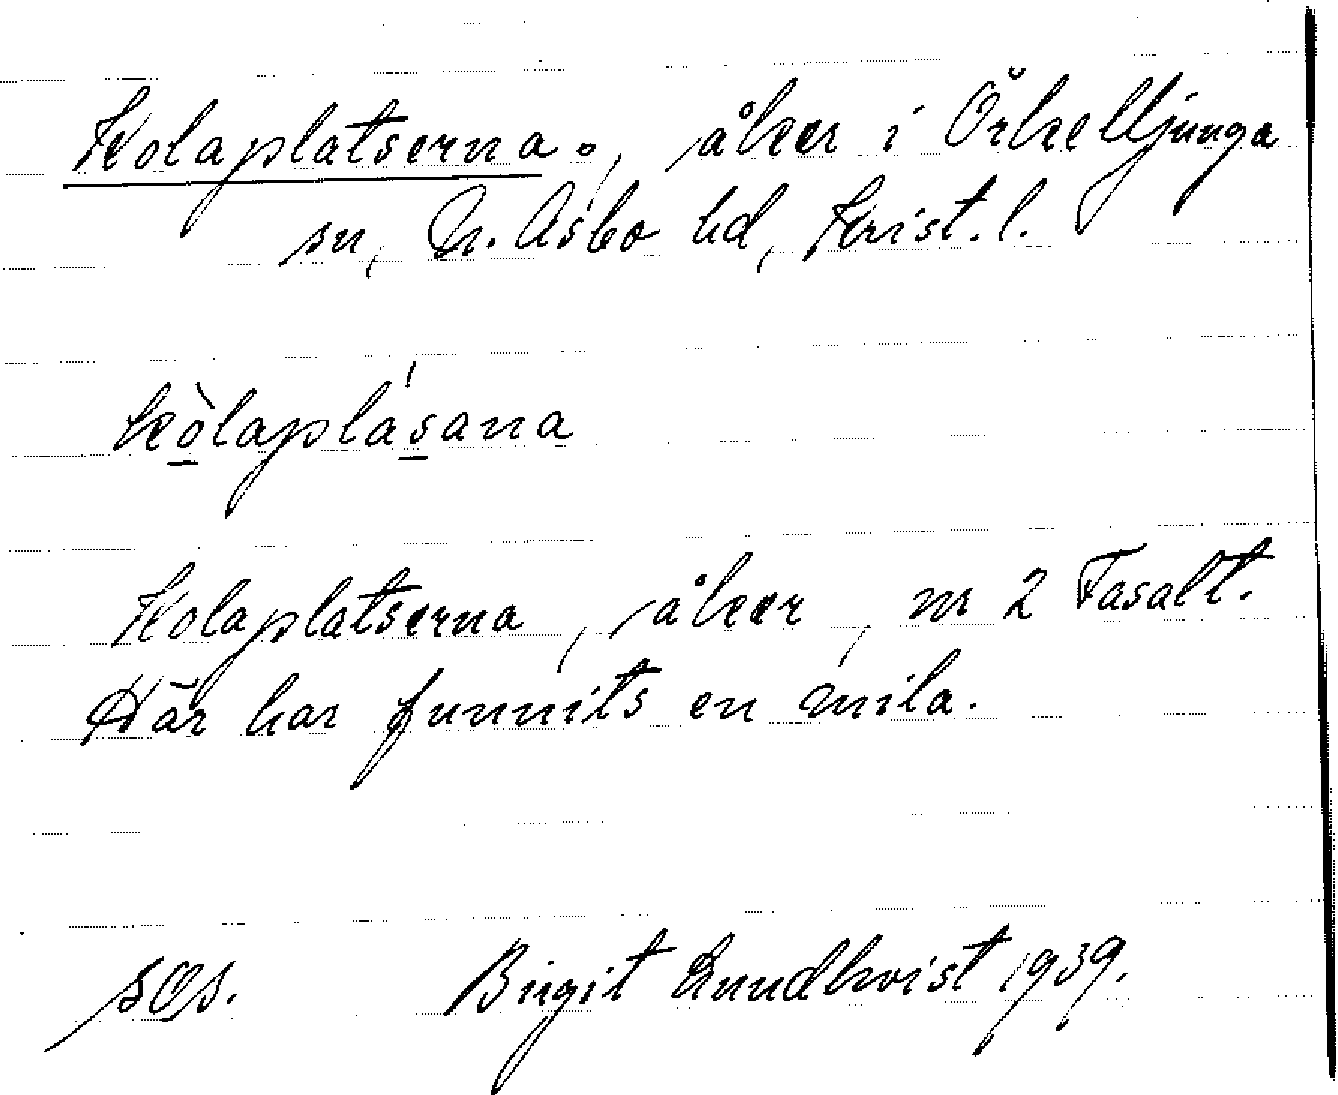 Kolaplatserna o, åker i Örkelljunga
sn, N. Åsbo hd, Krist. l.
kòlaplásana
Kolaplatserna, åker, nr 2 Fasalt.
Här har funnits en mila.
Birgit Lundkvist 1939.